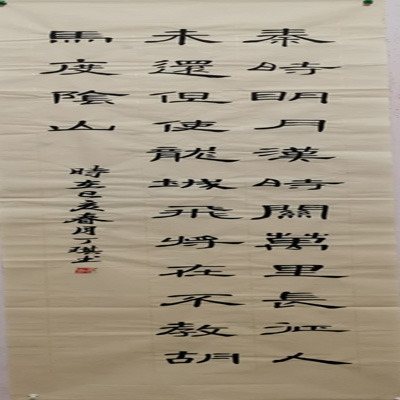 秦時明月漢時關萬里長征人
未還但使龍城飛將在不教胡
馬度陰山
時在己亥春月丁琪